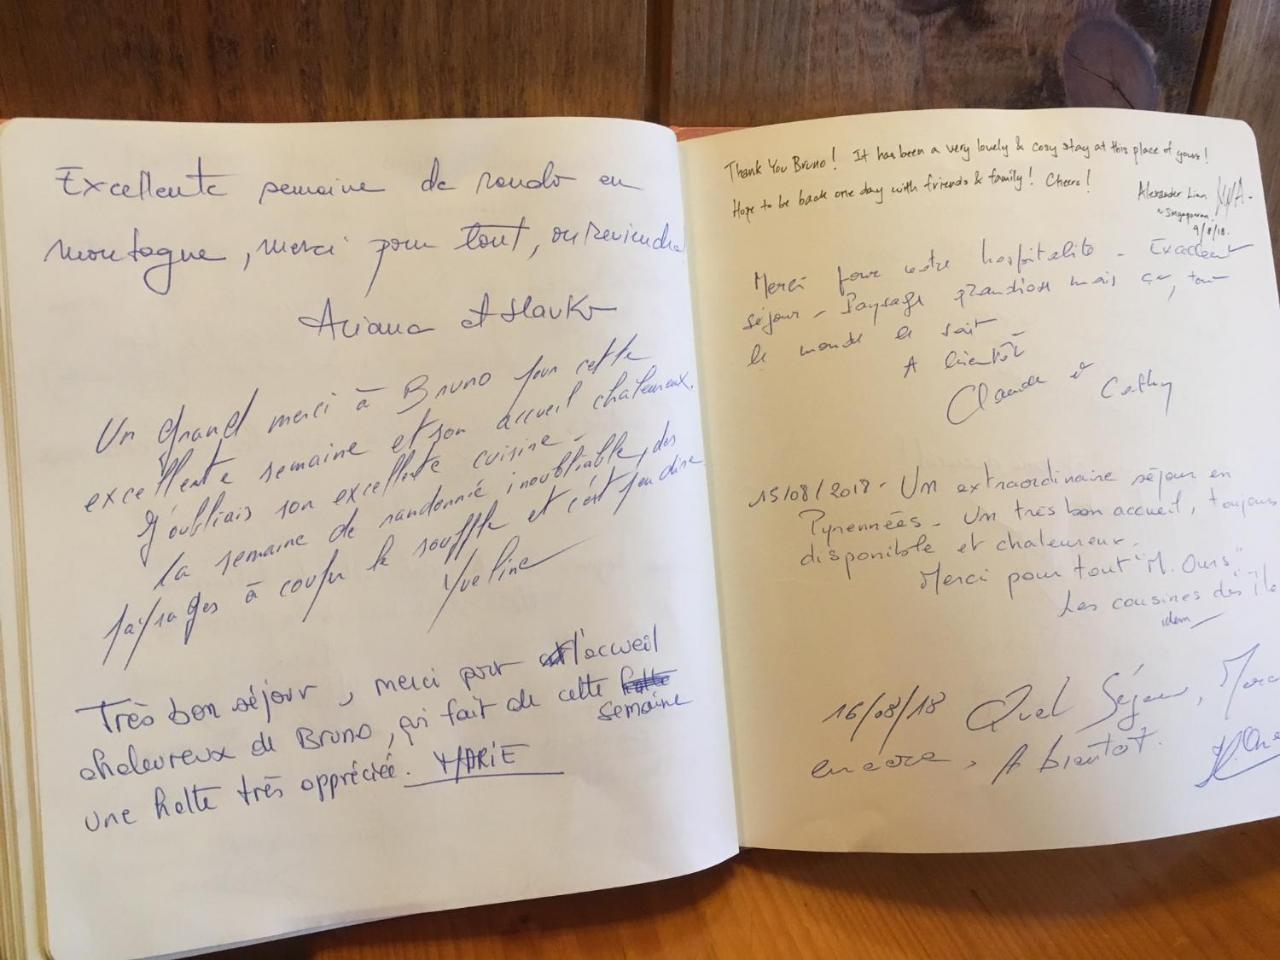 Excellente semaine de rando en
montagne, merci pour tout, on reviendra
Ariana et
Un grand merci à Bruno pour cette
excellente semaine et son accueil chaleureux.
J'oubliais son excellente cuisine -
La semaine de randonnée inoubliable, des
paysages à couper le souffle et c'est peu dire
Yveline
Très bon séjour, merci pour l'accueil
chaleureux de Bruno, qui fait de cette
semaine
une halte très appréciée. MARIE
Thank You Bruno! It has been a very lovely & cozy stay at this place of yours!
Hope to be back one day with friends & family! Cheers!
Alexander Lian
Singaporean
9/8/18.
Merci pour votre hospitalité - Excellent
séjour - Paysage grandiose mais ça, tout
le monde le sait -
A bientôt
Claude et Cathy
15/08/2018 - Un extraordinaire séjour en
Pyrennées - Un très bon accueil, toujours
disponible et chaleureux.
Merci pour tout "M. Ours"
Les cousines des
16/08/18 Quel Séjour, Merci
encore, A bientôt.